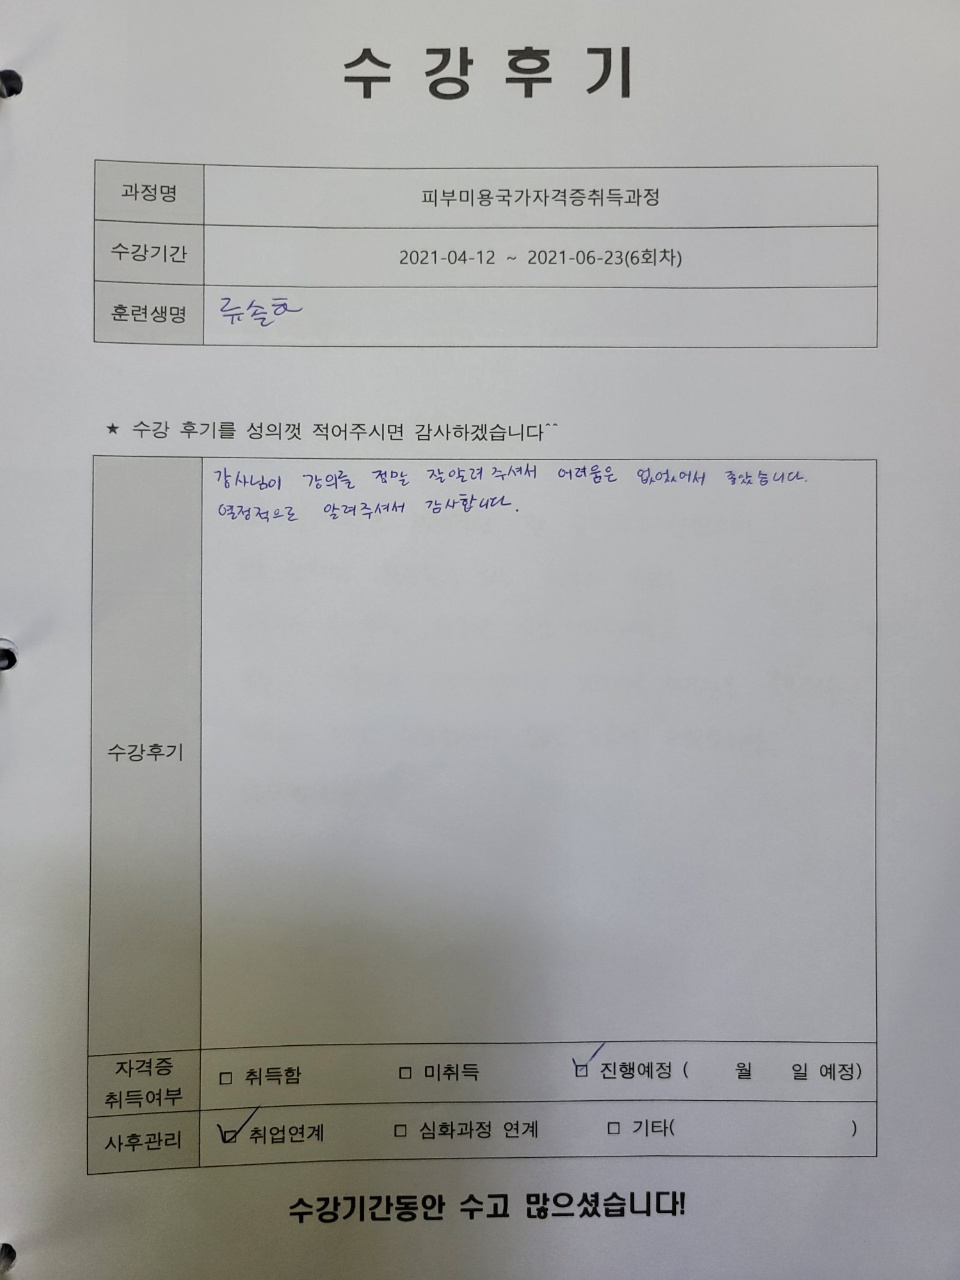 수강후기
과정명 피부미용국가자격증취득과정
수강기간 2021-04-12 ~ 2021-06-23(6회차)
훈련생명 류솔호
★ 수강 후기를 성의껏 적어주시면 감사하겠습니다^^
강사님이 강의를 정말 잘알려주셔서 어려움은 없었어서 좋았습니다.
열정적으로 알려주셔서 감사합니다.
수강후기
자격증
취득여부 □ 취득함 □ 미취득 ☑ 진행예정 ( 월 일 예정)
사후관리 ☑ 취업연계 □ 심화과정 연계 □ 기타( )
수강기간동안 수고 많으셨습니다!